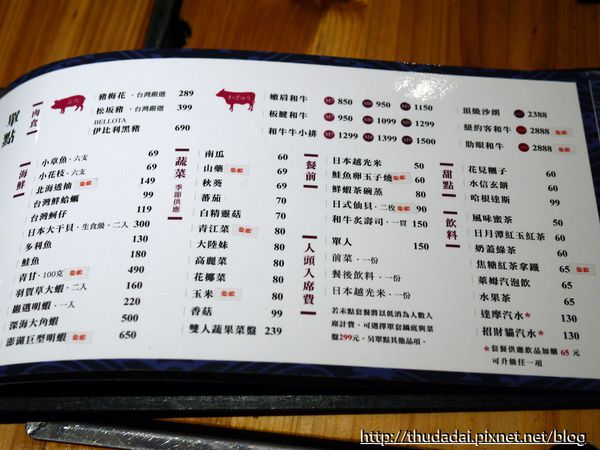 單點
肉食
豬梅花・台灣嚴選 289
松坂豬・台灣嚴選 399
BELLOTA
伊比利黑豬 690
嫩肩和牛 850 950 1150
板腱和牛 950 1099 1299
和牛牛小排 1299 1399 1500
頂級沙朗 2388
紐約客和牛 2888
肋眼和牛 2888
海鮮
小章魚・六支 69
小花枝・六支 69
北海透抽 149
台灣鮮蛤蠣 99
台灣蚵仔 119
日本大干貝・生食級・二入 300
多利魚 130
鮭魚 180
青甘・100克 490
羽賀草大蝦・二入 160
嚴選明蝦・一入 220
深海大角蝦 650
澎湖巨型明蝦 650
蔬菜 季節供應
南瓜 60
山藥 70
秋葵 60
蕃茄 70
白精靈菇 70
青江菜 80
大陸妹 80
高麗菜 80
花椰菜 80
玉米 80
香菇 99
雙人蔬果菜盤 239
餐前
日本越光米 50
鮭魚卵玉子燒 60
鮮蝦茶碗蒸 80
日式仙貝・二枚 90
和牛炙壽司・一貫 150
人頭入席費
單人 150
前菜・一份
餐後飲料・一份
日本越光米・一份
若未點套餐將以低消為人數入
席計費，可選擇單套鍋底與菜
盤299元，另單點其他品項。
甜點
花見糰子 60
水信玄餅 60
哈根達斯 99
飲料
風味蜜茶 50
日月潭紅玉紅茶 60
奶蓋綠茶 60
焦糖紅茶拿鐵 65
萊姆汽泡飲 65
水果茶 65
達摩汽水* 130
招財貓汽水* 130
*套餐供應飲品加購 65 元
可升做任一項
http://thudadai.pixnet.net/blog